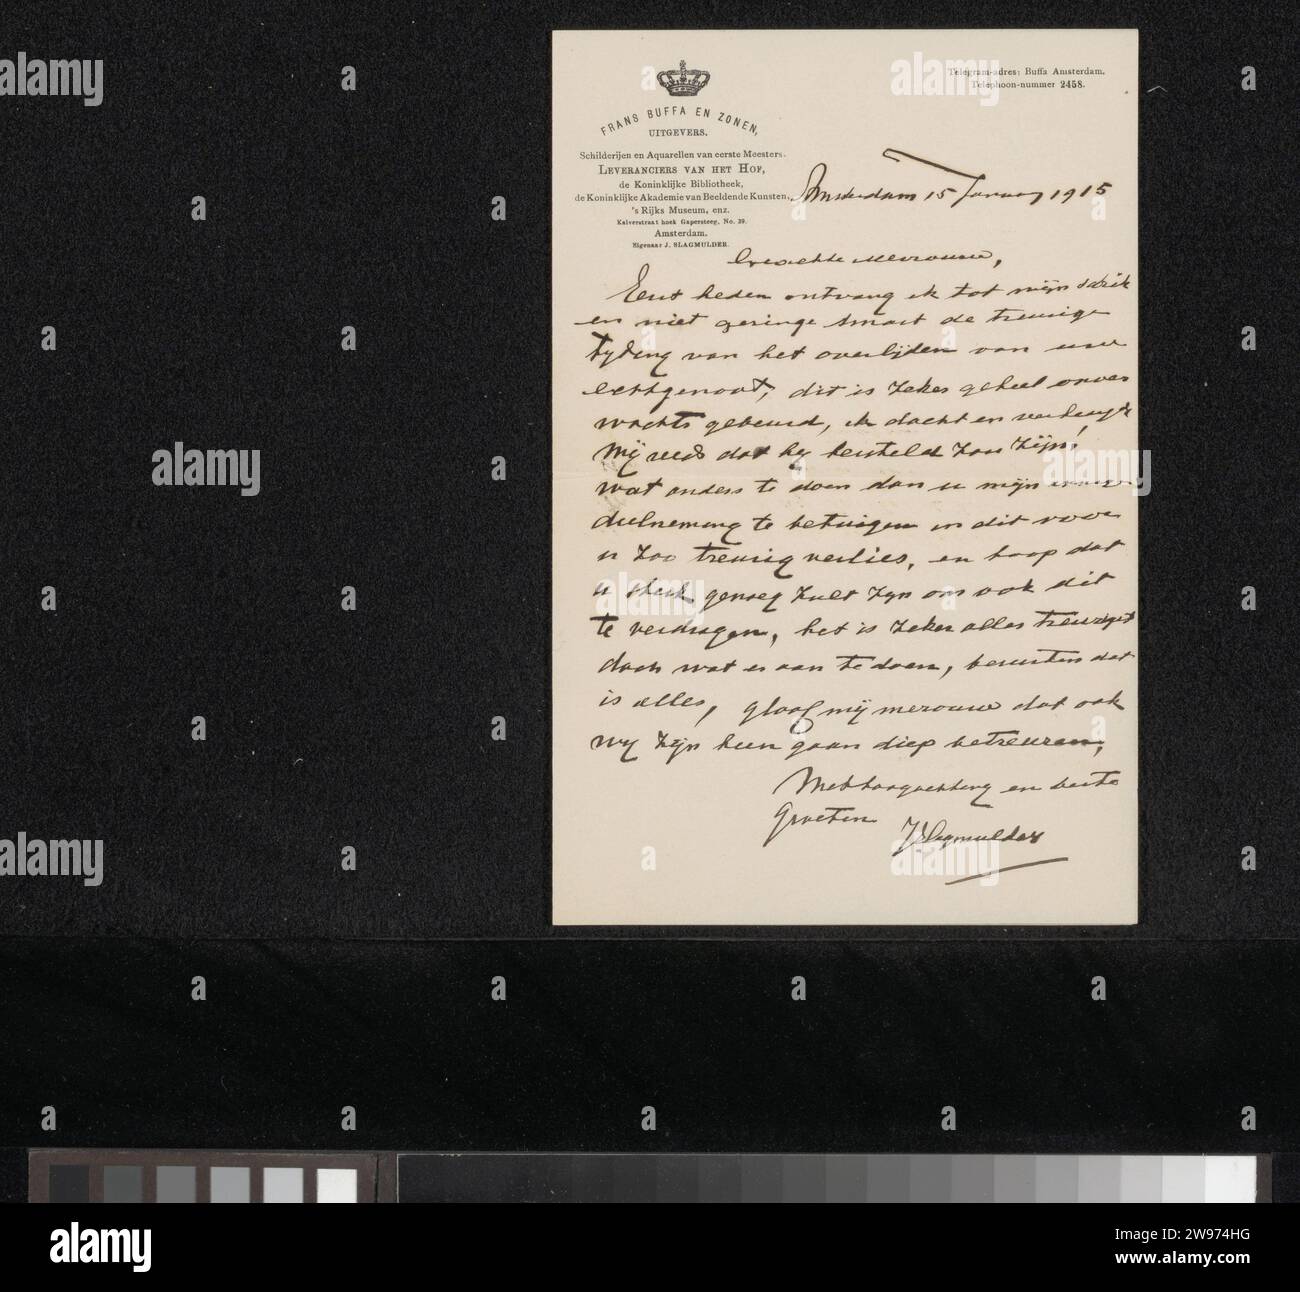 Telegram-adres: Buffa Amsterdam.
Telephoon-nummer 2458.
FRANS BUFFA EN ZONEN,
UITGEVERS.
Schilderijen en Aquarellen van eerste Meesters.
LEVERANCIERS VAN HET HOF,
de Koninklijke Bibliotheek,
de Koninklijke Akademie van Beeldende Kunsten,
's Rijks Museum, enz.
Kalverstraat hoek Gapersteeg, No. 39.
Amsterdam.
Eigenaar J. SLAGMULDER.
Amsterdam 15 January 1915
Geachte Mevrouw,
Eerst heden ontvang ik tot mijn schrik
en niet geringe smart de treurige
tyding van het overlijden van uw
echtgenoot, dit is zeker geheel onver
wachts gebeurd, ik dacht en verheugde
mij reeds dat hy hersteld zou zijn!
wat anders te doen dan u mijn innige
deelneming te betuigen in dit voor
u zoo treurig verlies, en hoop dat
u sterk genoeg zult zyn om ook dit
te verdragen, het is zeker alles treurig
doch wat er aan te doen, berusten dat
is alles, geloof mij mevrouw dat ook
wy zijn heen gaan diep betreuren,
Met hoogachting en beste
Groeten
JSlagmulder
alamy
Image ID: 2W974HG
www.alamy.com